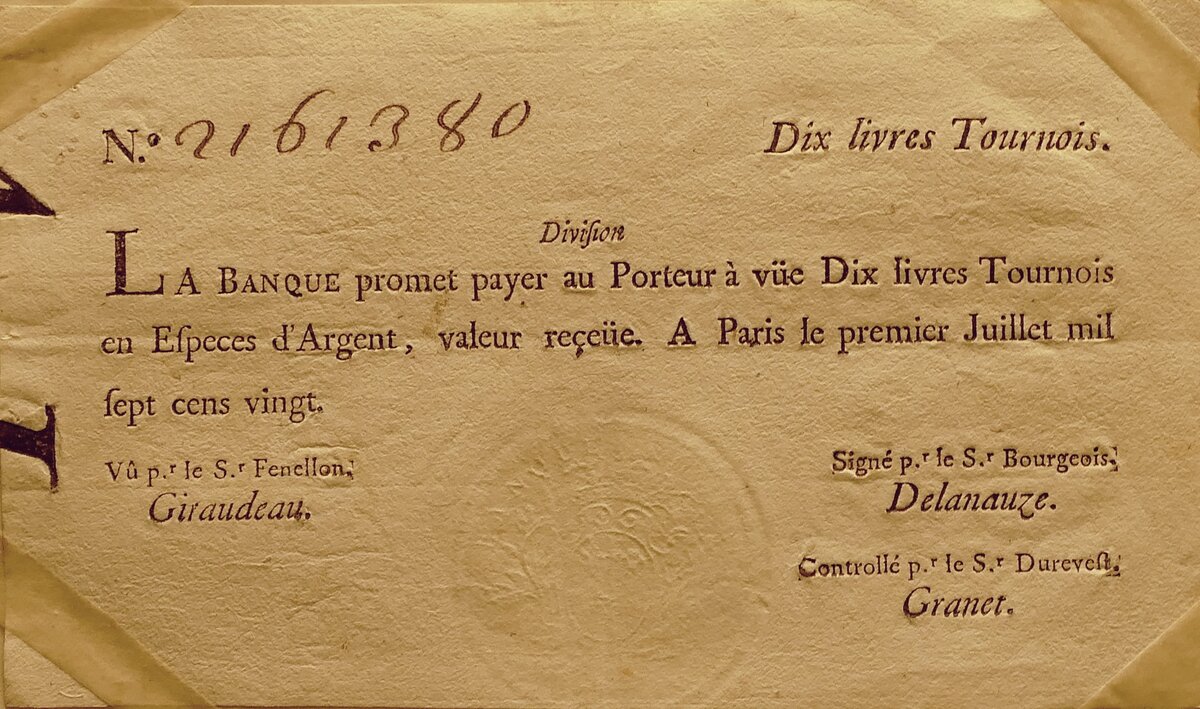 N.º 2161380 Dix livres Tournois.
Diviſion
LA BANQUE promet payer au Porteur à vüe Dix livres Tournois
en Eſpeces d'Argent, valeur reçeüe. A Paris le premier Juillet mil
ſept cens vingt.
Vû p.r le S.r Fenellon,
Giraudeau.
Signé p.r le S.r Bourgeois,
Delanauze.
Controllé p.r le S.r Dureveſt,
Granet.